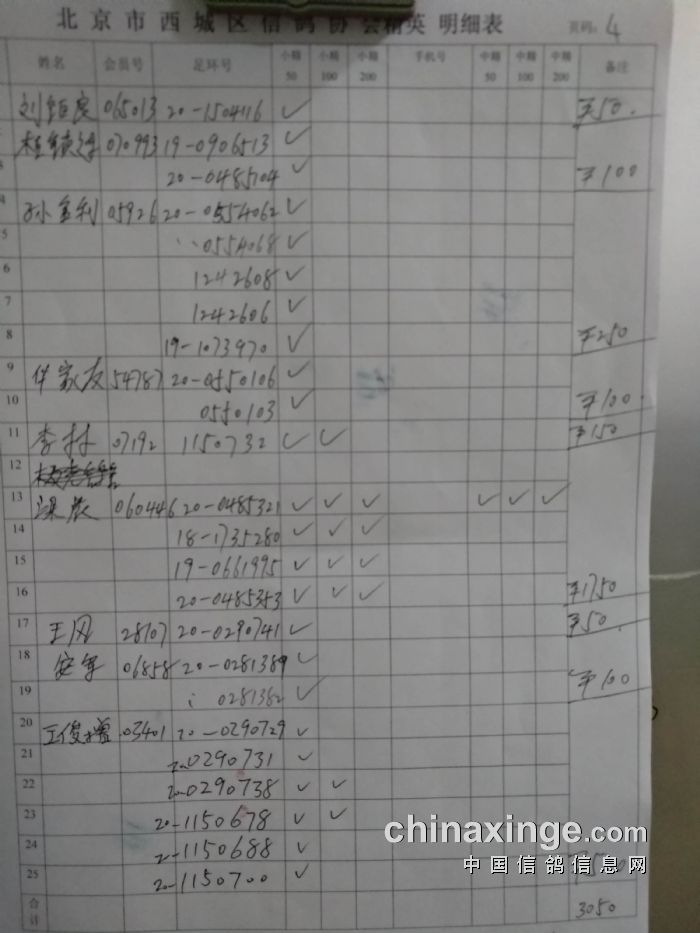 北京市西城区信鸽协会精英 明细表 页码: 4
姓名 会员号 足环号 小额50 小额100 小额200 手机号 中额50 中额100 中额200 备注
065013 20-1504116 ✓ ¥50.
070993 19-0906513 ✓
3 20-0485104 ✓ ¥100
4 孙金利 05926 20-0554062 ✓
5 0554068 ✓
6 1242608 ✓
7 1242606 ✓
8 19-1073970 ✓ ¥250
9 家友 54787 20-0550106 ✓
10 0550103 ✓ ¥100
11 李林 07192 1150732 ✓ ✓ ¥150
12
13 梁辰 060446 20-0485321 ✓ ✓ ✓ ✓ ✓ ✓
14 18-1735280 ✓ ✓ ✓
15 19-0661995 ✓ ✓ ✓
16 20-0485353 ✓ ✓ ✓ ¥1750
17 王风 28107 20-0290741 ✓ ¥50.
18 安军 06858 20-0281389 ✓
19 0281382 ✓ ¥100
20 王俊增 03401 20-0290729 ✓
21 20-0290731 ✓
22 20-0290738 ✓ ✓
23 20-1150678 ✓ ✓
24 1150688 ✓
25 20-1150700 ✓
合计 3050
chinaxinge.com
中国信鸽信息网